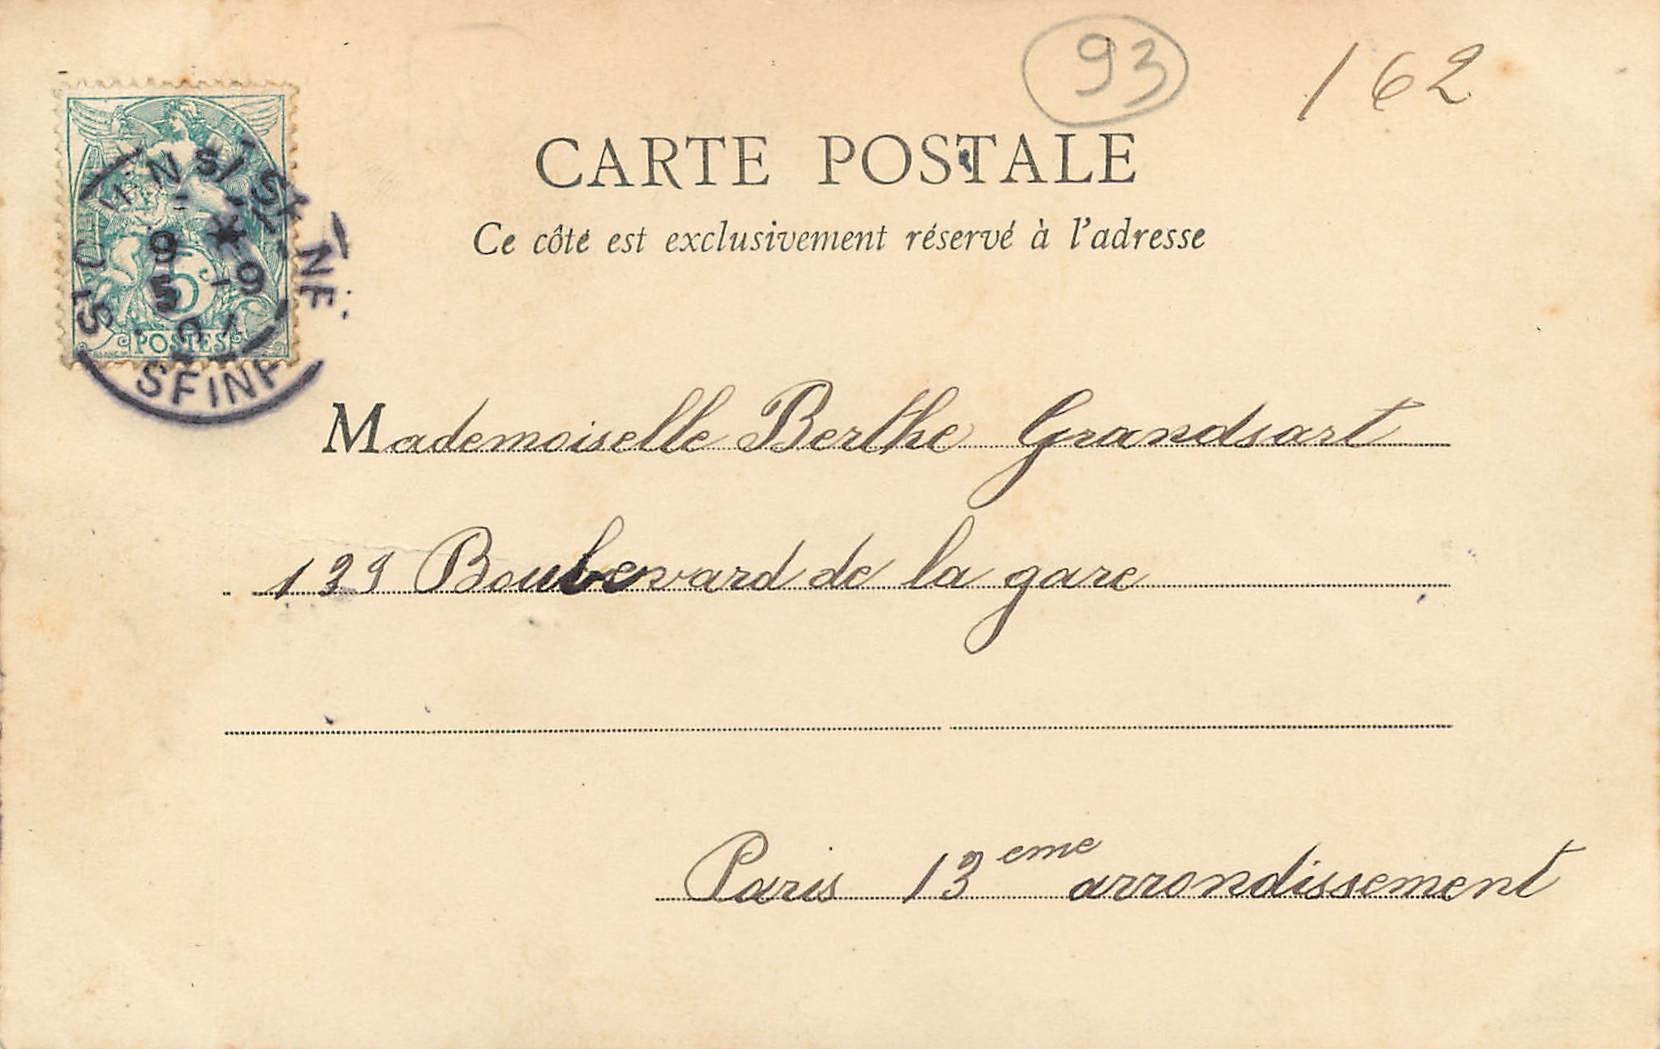 93
162
CARTE POSTALE
Ce côté est exclusivement réservé à l'adresse
5
POSTES
SEINE
Mademoiselle Berthe Grandsart
199 Boulevard de la gare
Paris 13eme arrondissement